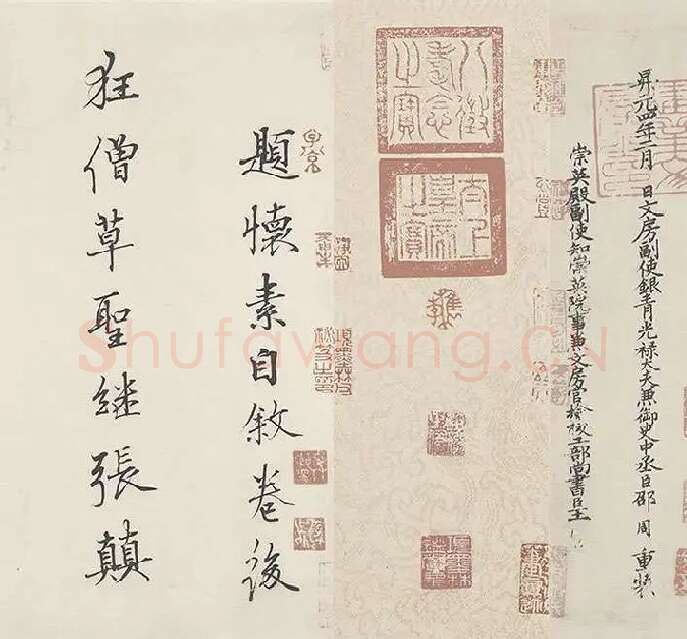 昇元四年二月 日文房副使銀青光禄大夫兼御史中丞臣邵 周 重裝
崇英殿副使知崇英院事兼文房官檢校工部尚書臣王
八徵耄念之寶
太上皇帝之寶
樵
子京
項墨林父秘笈之印
題懷素自敘卷後
狂僧草聖継張顛
Shufawang.CN